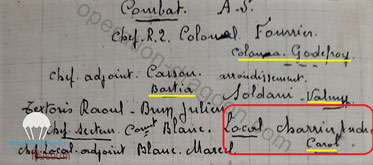 Combat. A.S.
Chef. R.2. Colonel Fournier.
Colonna Godefroy
chef adjoint. Casson. arrondissement.
Bastia Soldani - Valmy
Tertoris Raoul - Buy Julien
chef. Secteur Comt Blanc. Local charrier
Carol
chef local. adjoint Blanc. Marcel.